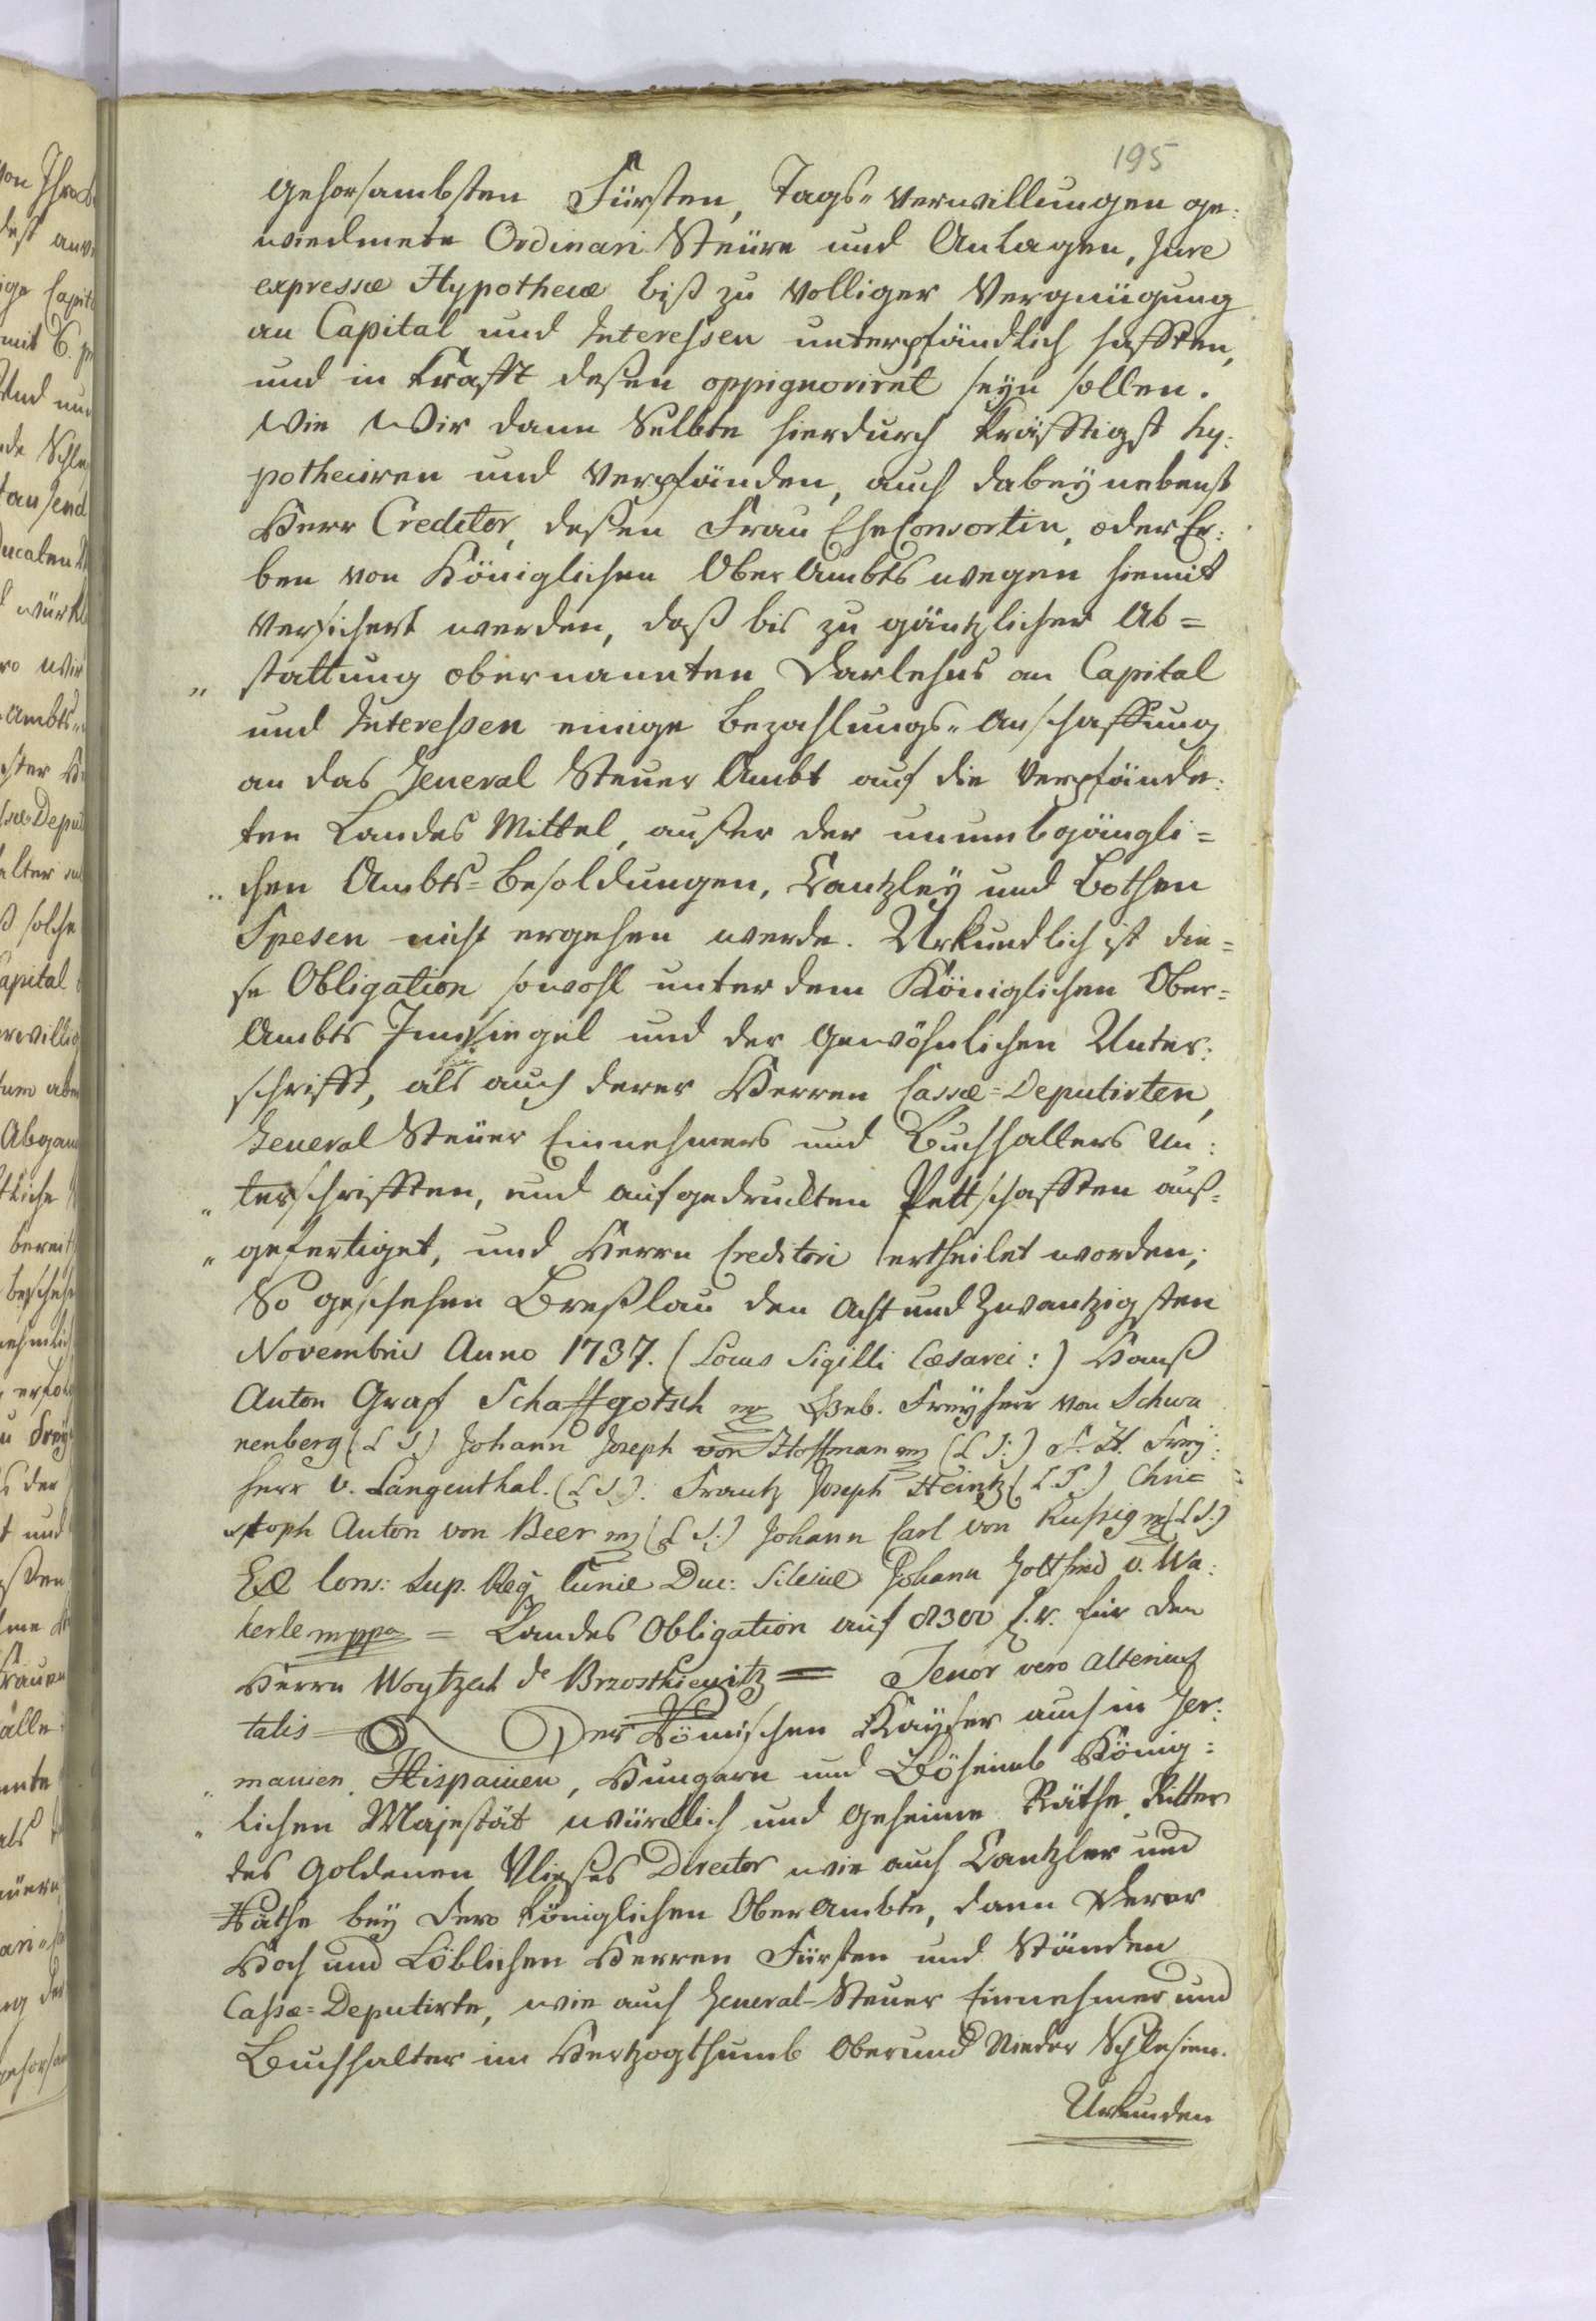 195
gehorsambsten Fürsten, Tags„ verwillungen ge:
wiedmete Ordinari Steüre und Anlagen, Jure
expressæ Hypothecæ biß zu volliger Vergnügung
an Capital und Interessen unterpfändlich hafften,
und in krafft deßen oppignoriret seyn sollen.
Wie Wir dann Selbte hierdurch kräfftigst hy:
potheciren und verpfänden, auch dabey nebenst
Herr Creditor, deßen Frau EheConsortin, oder Er:
ben von Königlichen Ober Ambts wegen hiemit
versichert werden, daß bis zu gäntzlicher Ab=
„ stattung obernannten Darlehns an Capital
und Interessen einige bezahlungs„ Anschaffung
an das General Steuer Ambt auf die verpfände:
ten Landes Mittel, außer der unumbgängli=
„ chen Ambts=besoldungen, Cantzley und Bothen
Spesen nicht ergehen werde. Urkundlich ist die=
se Obligation sowohl unter dem Königlichen Ober=
Ambts Innsiegel und der gewöhnlichen Unter:
schrifft, als auch derer Herren Cassæ=Deputirten,
General Steüer Einnehmers und Buchhalters Un:
„ terschrifften, und aufgedruckten Pettschafften auß=
„ gefertiget, und Herrn Creditori ertheilet worden;
So geschehen Breßlau den Acht und Zwantzigsten
Novembris Anno 1737. (Locus Sigilli Cæsarei:) Hanß
Anton Graf Schaffgotsch mp Seb. Freyherr von Schwa
nenberg (L S) Johann Joseph von Hoffman mp (L S:) F. H. Frey:
herr v. Langenthal. (L S). Frantz Joseph Heintz (L.S.) Chri=
stoph Anton von Beer mp (L S.) Johann Carl von Russig mp (L S.)
Ex Cons: Sup. Reg. Curiæ Duc: Silesiæ Johann Gottfried v. Wa:
kerle mppa = Landes Obligation auf 8300 f.r. für den
Herrn Woytzech de Brzostkiewitz = Tenor vero alterius
talis = Der Römischen Kayser auch in Ger:
„ manien, Hispanien, Hungarn und Böheimb König:
„ lichen Majestät würcklich und geheime Räthe, Ritter
des Goldenen Vließes Director wie auch Cantzler und
Räthe bey Dero Königlichen OberAmbte, dann Derer
Hoch und Löblichen Herren Fürsten und Ständen
Cassæ=Deputirte, wie auch General-Steuer Einnehmer und
Buchhalter im Hertzogthumb Ober und Nieder Schlesien.
Urkunden